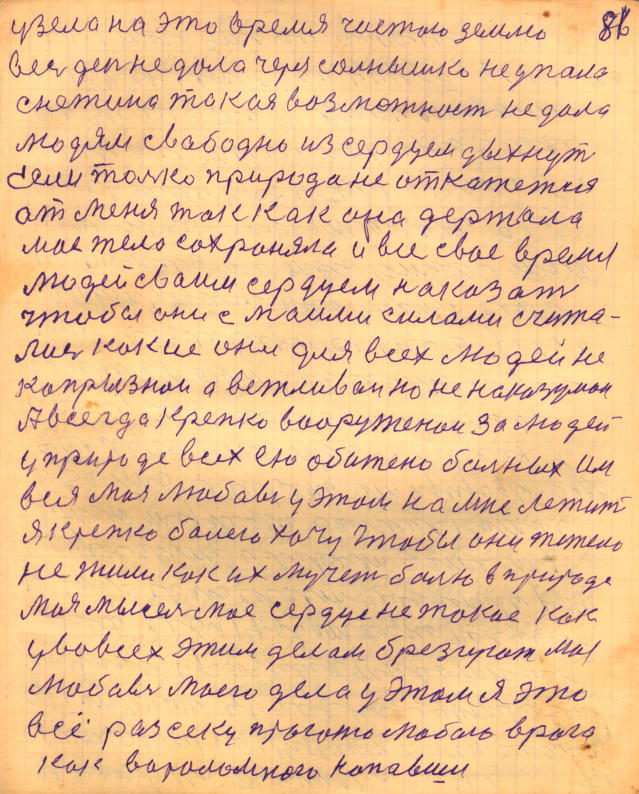 узела на это время чистою землю 86
всы деп не дола черя солнышко не упала
снежина такая возможност не дола
людям свабодно из сердцем дыхнут
если толко природа не откажетя
от меня так как она держала
мое тело сохроняла и все свое время
людей сваим сердцем наказат
чтобы они с маими силами счита-
лися какие они для всех людей не
капризнаи а вежливаи но не наказуман
А всегда крепко вооруженаи за людей
у природе всех ею обижено балных им
вся моя любавь у этом на мне лежит
я крепко балею хочу чтобы они тежело
не жили как их мучет болю в природе
моя мысля мое сердце не такое как
у вовсех этим делам брезгуют моя
любавь моего дела у этом я это
всё разсеку прогоню любого врага
как вороломного напавши